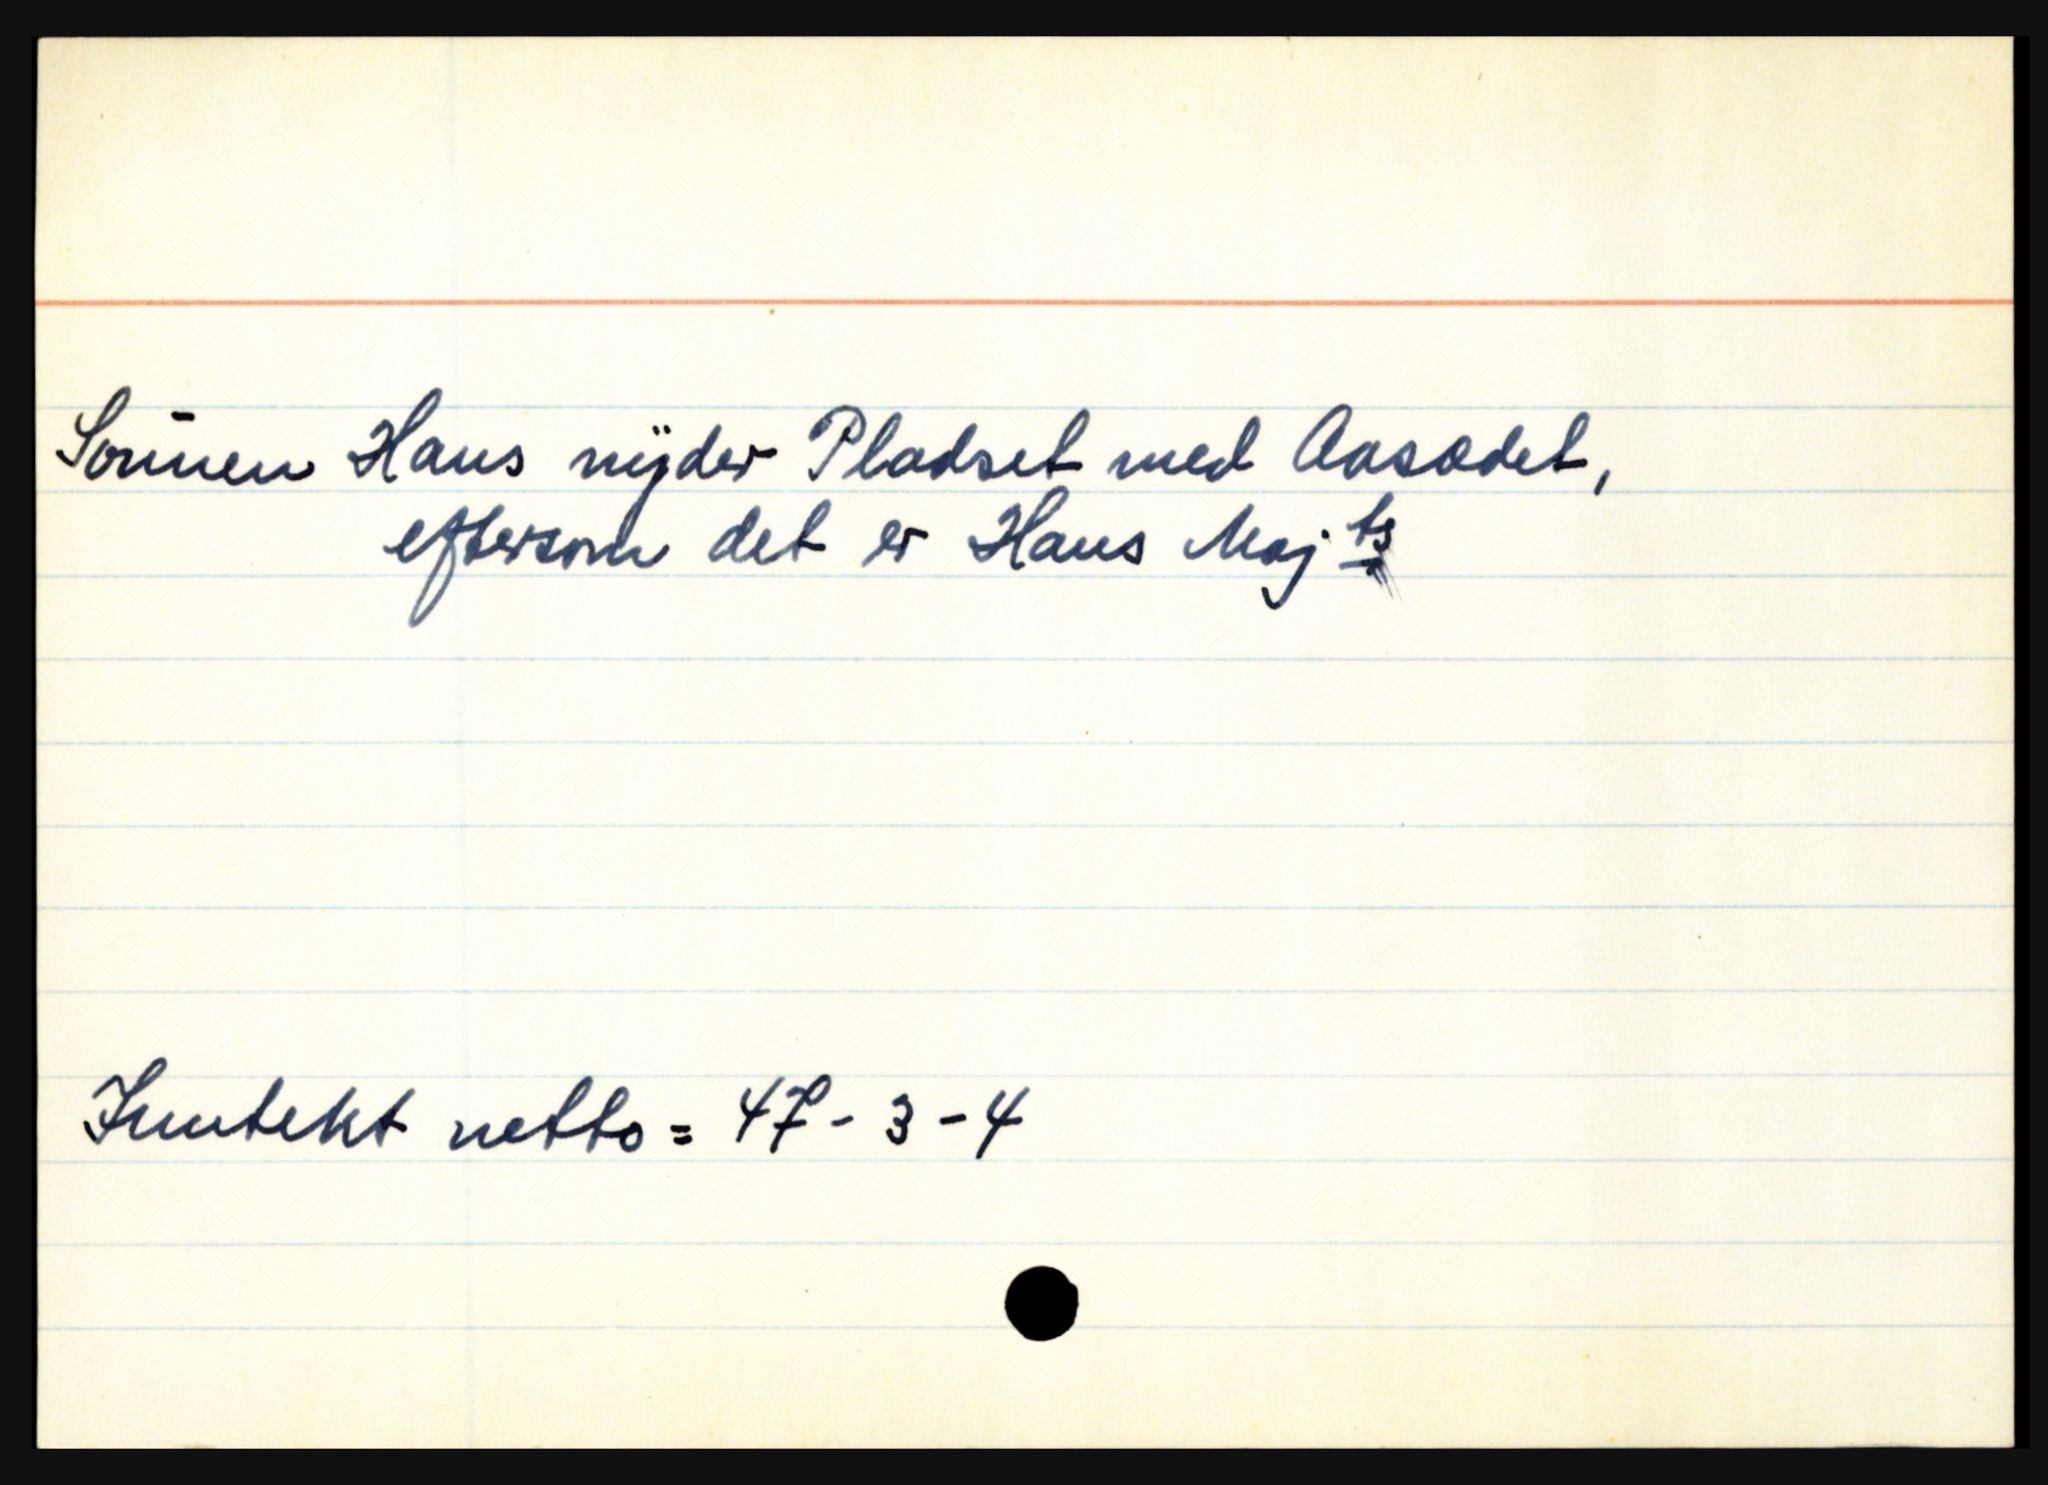 Sønnen Hans nÿder Pladset med Aasædet,
eftersom det er Hans Maj ts
Inntekt netto = 47 - 3 - 4